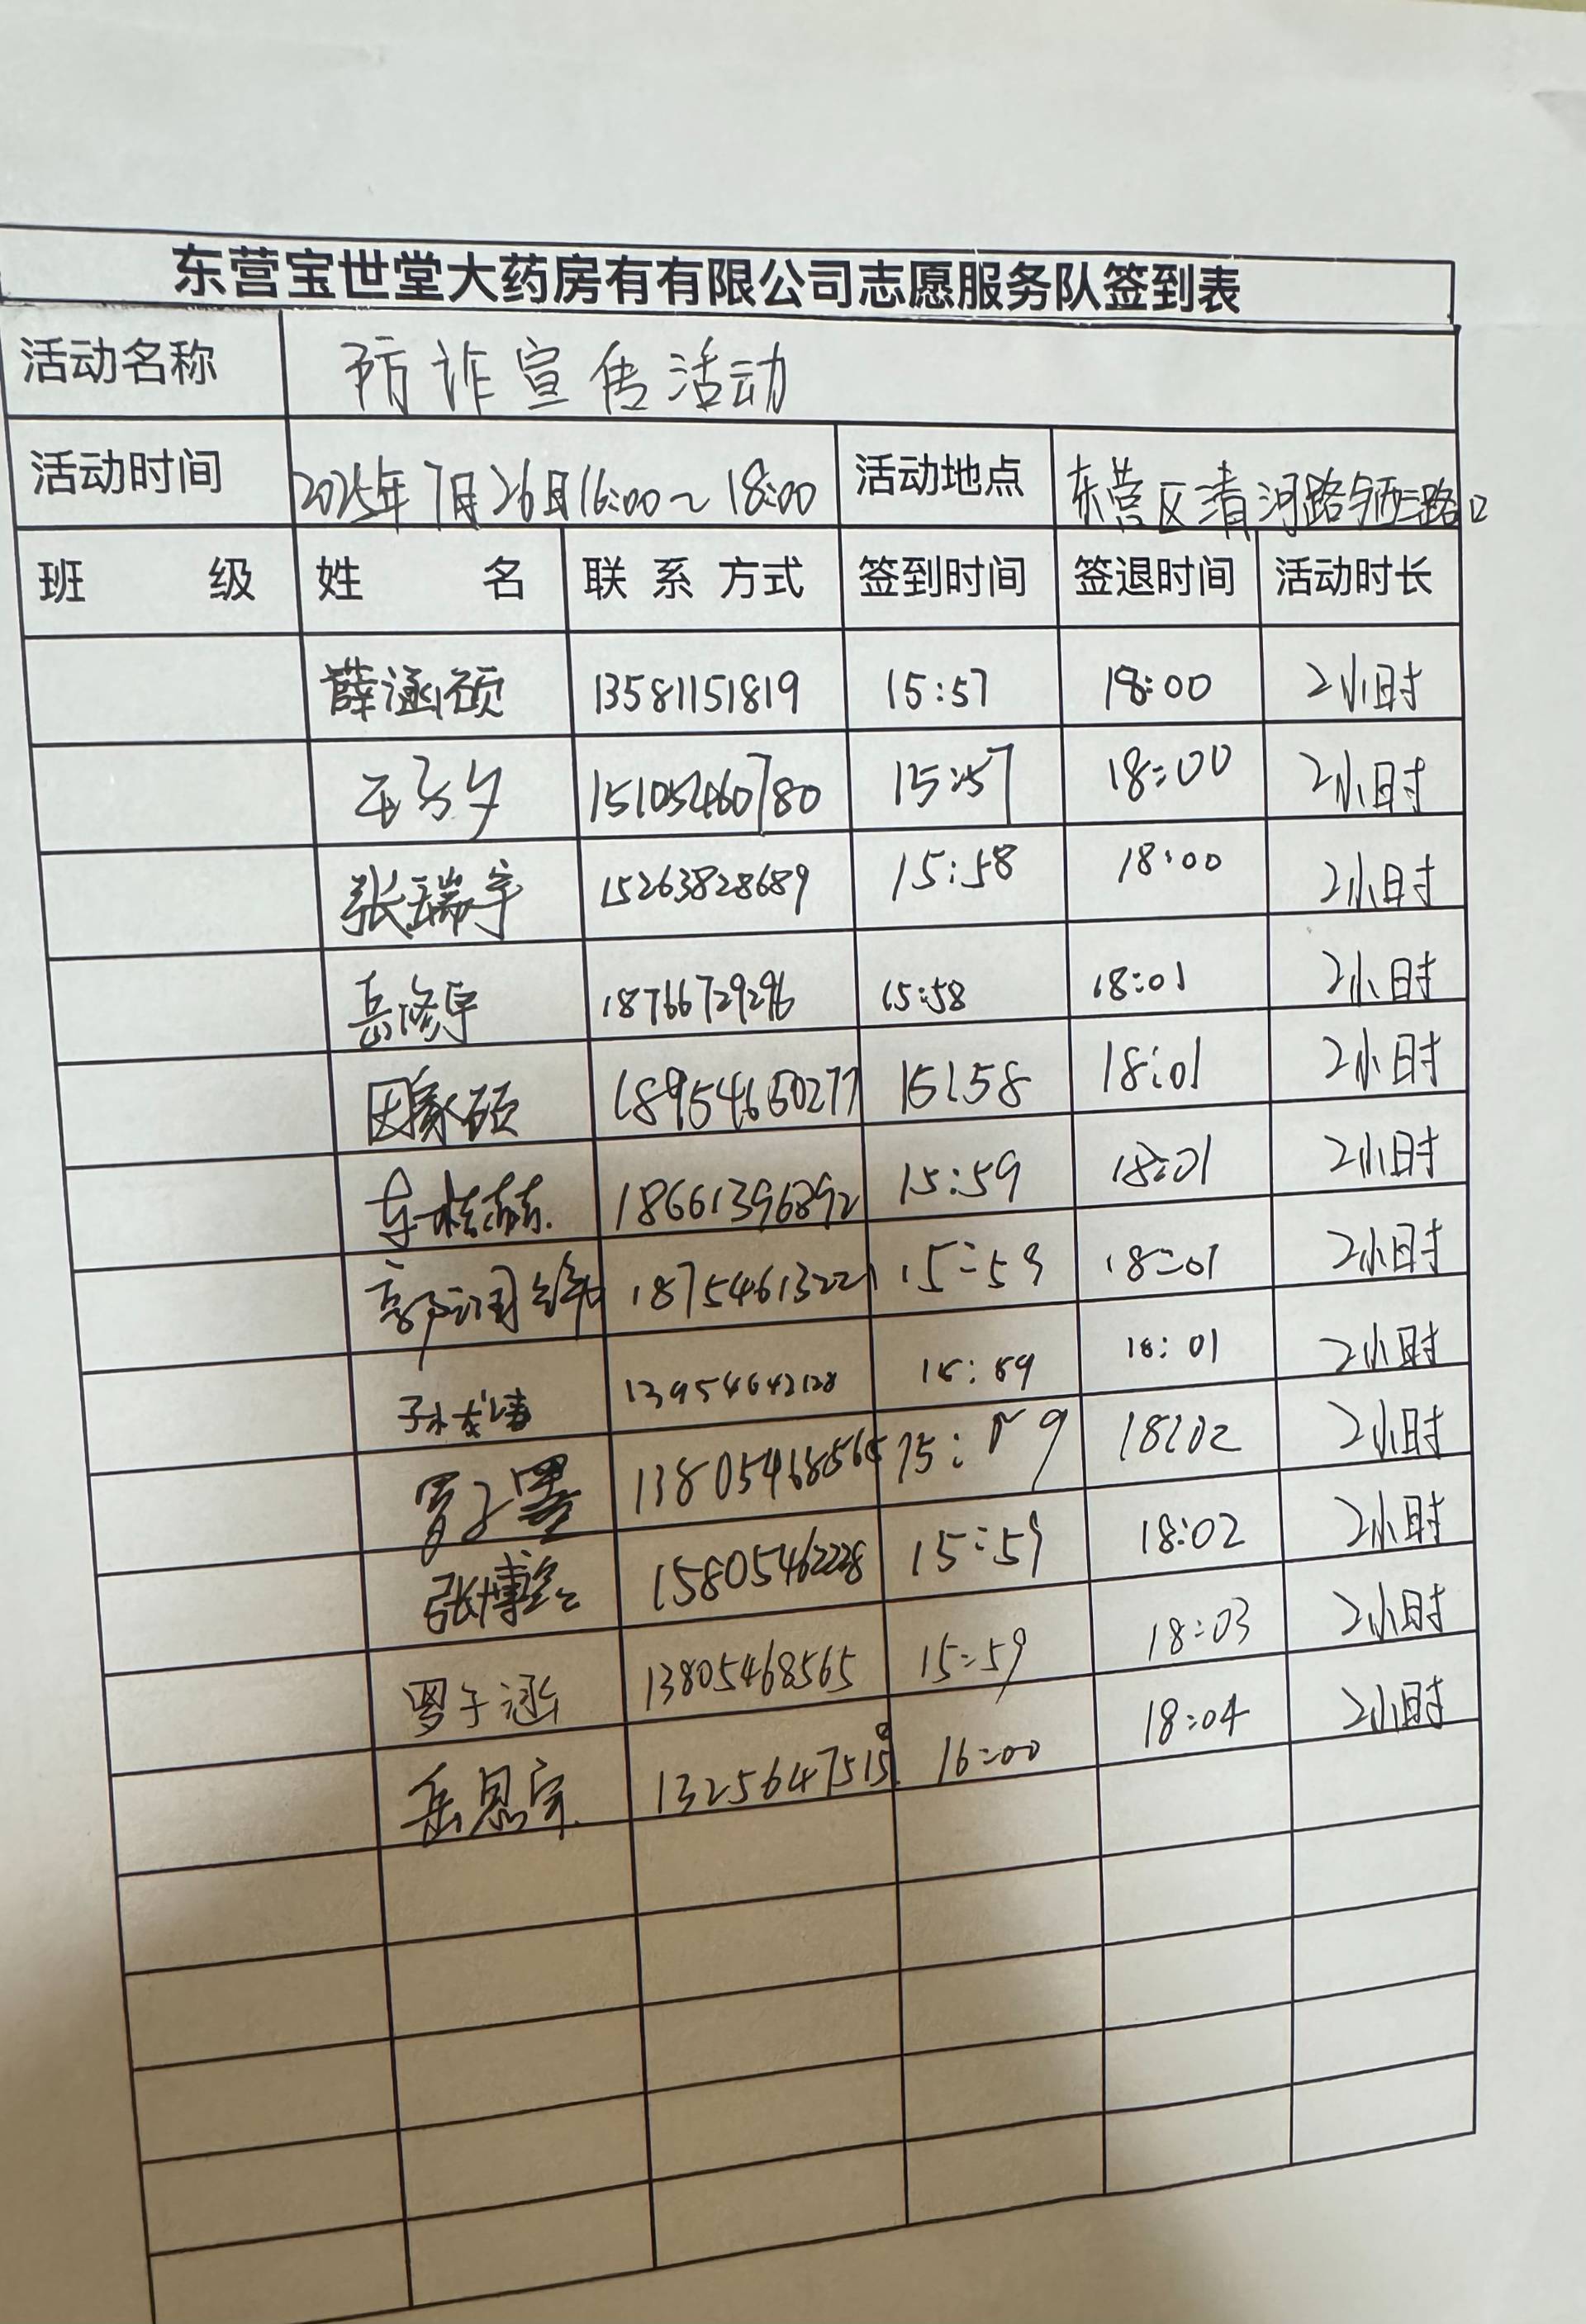 东营宝世堂大药房有有限公司志愿服务队签到表
活动名称 防诈宣传活动
活动时间 2025年7月26日16:00~18:00 活动地点 东营区清河路与西三路口
班 级 姓 名 联 系 方式 签到时间 签退时间 活动时长
薛涵硕 13581151819 15:57 18:00 2小时
15105460780 15:57 18:00 2小时
张瑞宇 15263828689 15:58 18:00 2小时
岳修宇 18766729296 15:58 18:01 2小时
田家硕 18954650277 15:58 18:01 2小时
18661396892 15:59 18:01 2小时
郭润 18754613221 15:59 18:01 2小时
13954642128 15:59 18:01 2小时
罗子墨 13805468565 15:59 18:02 2小时
张博 15805462228 15:59 18:02 2小时
罗子涵 13805468565 15:59 18:03 2小时
岳恩宗 13256475158 16:00 18:04 2小时